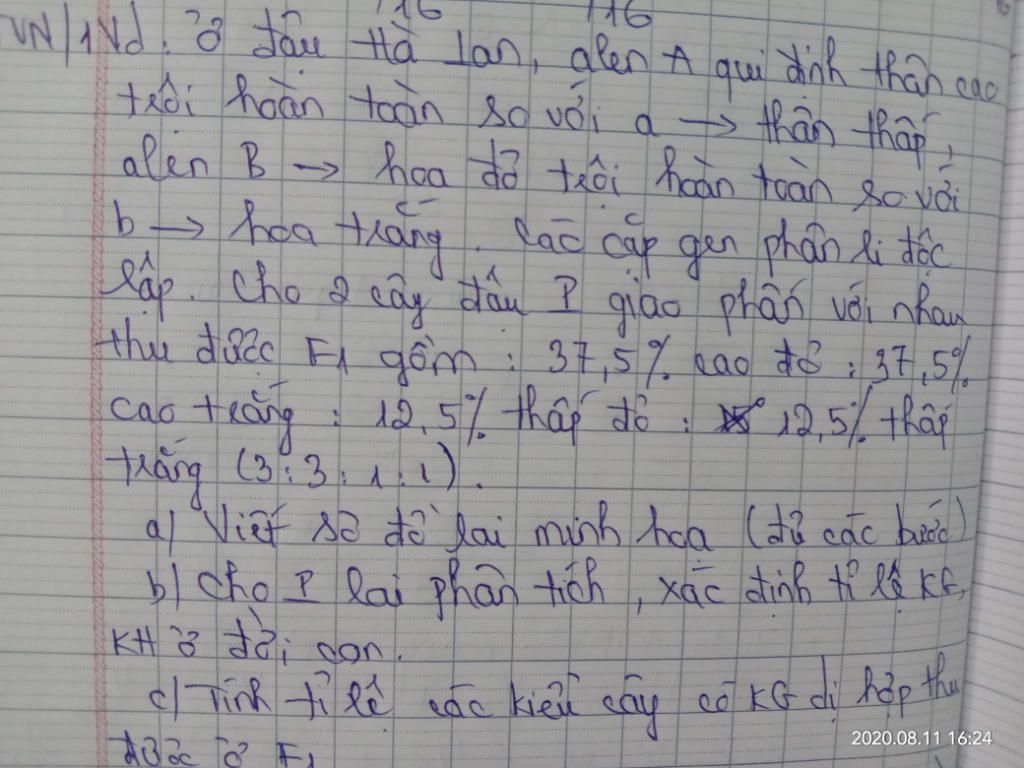 116 116
VN/1Vd: Ở đậu Hà Lan, alen A qui định thân cao
trội hoàn toàn so với a → thân thấp,
alen B → hoa đỏ trội hoàn toàn so với
b → hoa trắng. Các cặp gen phân li độc
lập. Cho 2 cây đậu P giao phấn với nhau
thu được F1 gồm: 37,5% cao đỏ : 37,5%
cao trắng : 12,5% thấp đỏ : 12,5% thấp
trắng (3:3:1:1).
a) Viết sơ đồ lai minh hoạ (đủ các bước)
b) Cho P lai phân tích, xác định tỉ lệ KG,
KH ở đời con.
c) Tính tỉ lệ các kiểu cây có KG dị hợp thu
được ở F1
2020.08.11 16:24